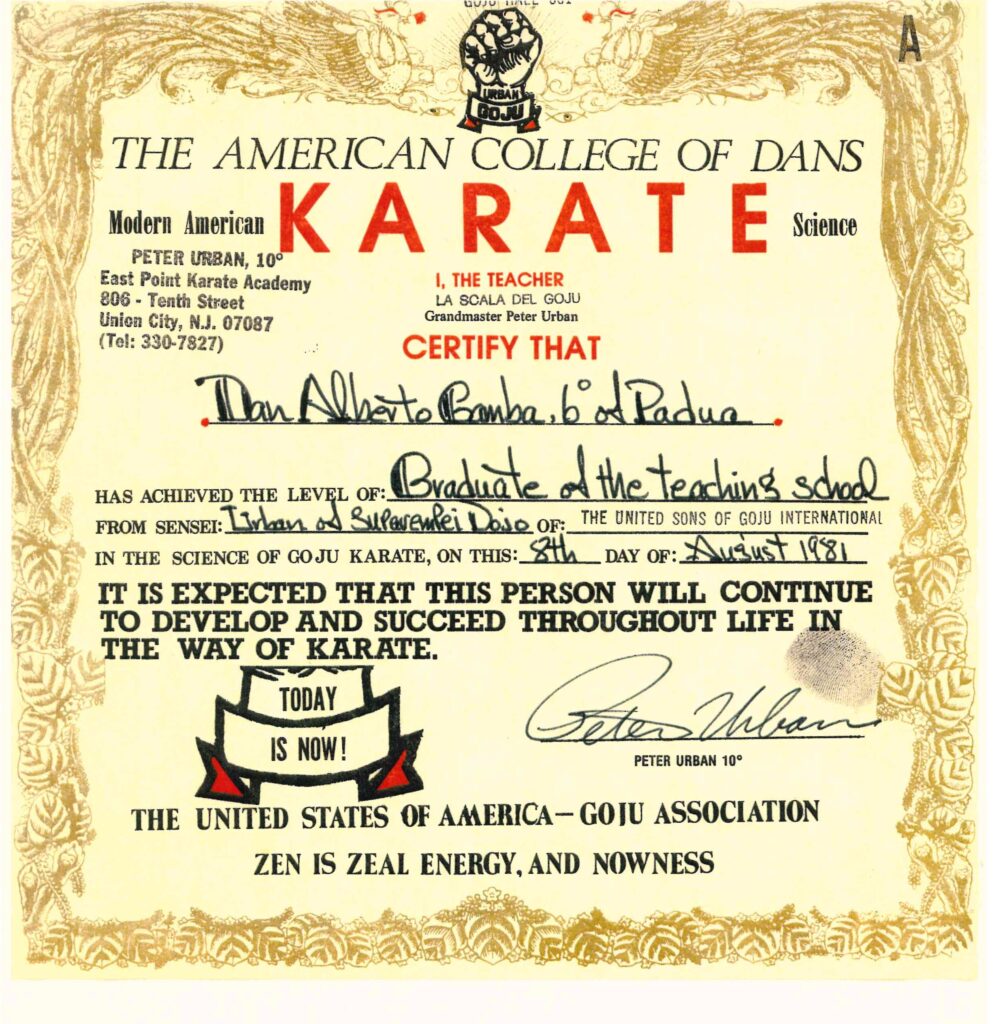 URBAN
GOJU
A
THE AMERICAN COLLEGE OF DANS
KARATE
Modern American
Science
PETER URBAN, 10°
East Point Karate Academy
806 - Tenth Street
Union City, N.J. 07087
(Tel: 330-7827)
I, THE TEACHER
LA SCALA DEL GOJU
Grandmaster Peter Urban
CERTIFY THAT
Dan Alberto Gamba, 6° of Padua
HAS ACHIEVED THE LEVEL OF: Graduate of the teaching school
FROM SENSEI: Urban of Dojo OF: THE UNITED SONS OF GOJU INTERNATIONAL
IN THE SCIENCE OF GOJU KARATE, ON THIS: 8th DAY OF: August 1981
IT IS EXPECTED THAT THIS PERSON WILL CONTINUE
TO DEVELOP AND SUCCEED THROUGHOUT LIFE IN
THE WAY OF KARATE.
TODAY
IS NOW!
Peter Urban
PETER URBAN 10°
THE UNITED STATES OF AMERICA—GOJU ASSOCIATION
ZEN IS ZEAL ENERGY, AND NOWNESS